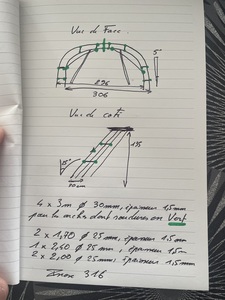 Vue de Face.
5°
296
306
Vue de coté
195
20cm
4 x 3m ø 30mm, épaisseur 1,5mm
pour les arches dont soudures en Vert
2 x 1,70 ø 25mm, épaisseur 1,5mm
1 x 2,60 ø 25mm, épaisseur 1,5mm
2 x 2,00 ø 25mm, épaisseur 1,5mm
Inox 316